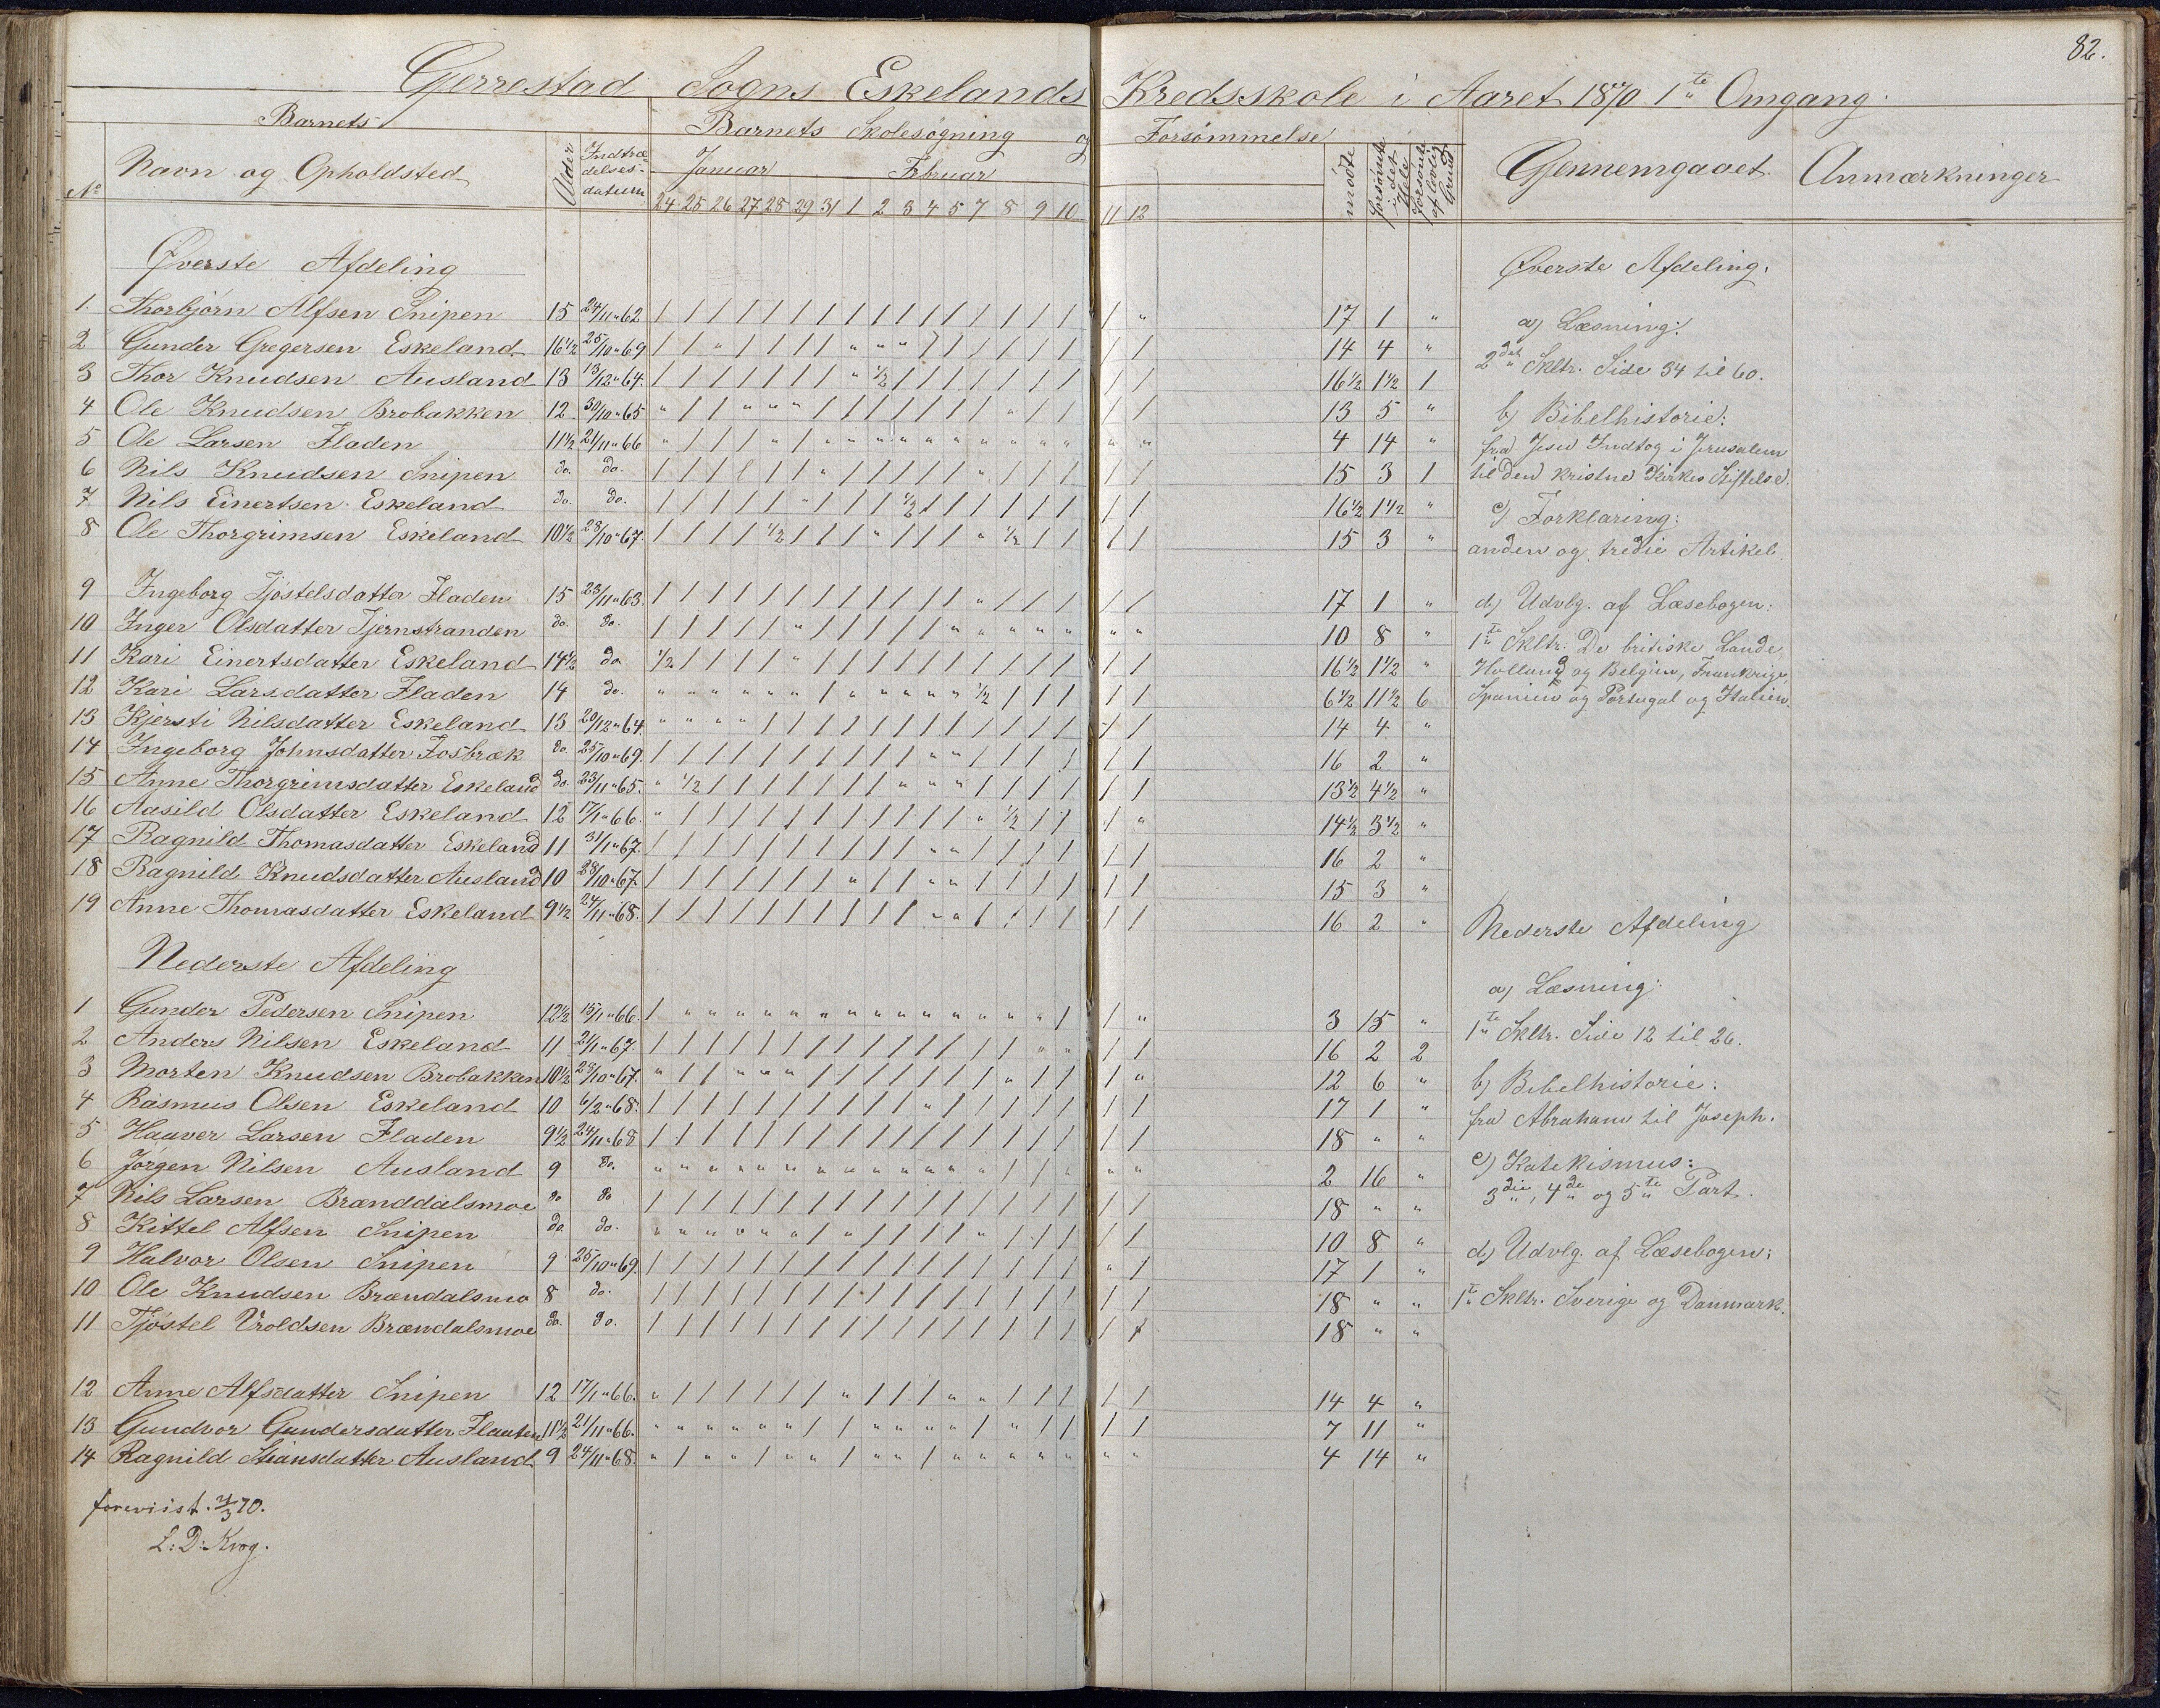 82.
Gjerrestad Sogns Eskelands Kredsskole i Aaret 1870 1te Omgang.
Barnets Barnets Skolesøgning og Forsømmelse
No Navn og Opholdsted Alder Indtrædelsesdatum Januar Februar mødte forsømte i det Hele forsømte af lovlig Grund Gjennemgaaet Anmærkninger
24 25 26 27 28 29 31 1 2 3 4 5 7 8 9 10 11 12
Øverste Afdeling
1. Thorbjørn Alfsen Snipen 15 24/11 " 62 / / / / / / / / / / / / / / / / / " 17 1 "
2 Gunder Gregersen Eskeland 16 1/2 25/10 " 69 / / " / / / / " " " / / / / / / / / 14 4 "
3 Thor Knudsen Ausland 13 13/12 " 64. / / / / / / / " 1/2 / / / / / / / / / 16 1/2 1 1/2 1
4 Ole Knudsen Brobakken 12 30/10 " 65 " / / " " " / / / / / / / " / / / / 13 5 "
5 Ole Larsen Fladen 11 1/2 21/11 " 66 " / / / " / " " " " " " " " " " " " 4 14 "
6 Nils Knudsen Snipen do. do. / / / / / / " / / / / / " / / / / / 15 3 1
7 Nils Einertsen Eskeland do. do. / / / / / " / / / 1/2 / / / / / / / / 16 1/2 1 1/2 "
8 Ole Thorgrimsen Eskeland 10 1/2 28/10 " 67. / / / / 1/2 / / / " / / / " 1/2 / / / / 15 3 "
9 Ingeborg Tjøstelsdatter Fladen 15 23/11 " 63. / / / / / / / / / / / / " / / / / / 17 1 "
10 Inger Olsdatter Tjernstranden do. do. / / / / / " / / / / / " " " " " " " 10 8 "
11 Kari Einertsdatter Eskeland 14 1/2 do 1/2 / / / / " / / / / / / / / / / / / 16 1/2 1 1/2 "
12 Kari Larsdatter Fladen 14 do. " " " " " " / " " " " " 1/2 / / / / / 6 1/2 11 1/2 6
13 Kjersti Nilsdatter Eskeland 13 20/12 " 64. " " " " / / / / / / / / / / / / / / 14 4 "
14 Ingeborg Johnsdatter Fosbræk do. 25/10 " 69. / / / / / / / / / / " " / / / / / / 16 2 "
15 Anne Thorgrimsdatter Eskeland do. 23/11 " 65. " 1/2 / / / / / / / " " " / / / / / / 13 1/2 4 1/2 "
16 Aasild Olsdatter Eskeland 12 17/1 " 66. " / / / / / / / / / / / " 1/2 / / / " 14 1/2 3 1/2 "
17 Ragnild Thomasdatter Eskeland 11 31/1 " 67. / / / / / / / / / / " " / / / / / / 16 2 "
18 Ragnild Knudsdatter Ausland 10 28/10 " 67. / / / / / / / " / / " " / / / / / / 15 3 "
19 Anne Thomasdatter Eskeland 9 1/2 24/11 " 68. / / / / / / / / / / " " / / / / / / 16 2 "
Nederste Afdeling
1 Gunder Pedersen Snipen 12 1/2 15/1 " 66. / " " " " " " " " " " " " " " / / " 3 15 "
2 Anders Nilsen Eskeland 11 21/1 " 67. / / / / / / / / / / / / / / " " / / 16 2 2
3 Morten Knudsen Brobakken 10 1/2 28/10 " 67. " / / " " " / / / / / / / " / / / " 12 6 "
4 Rasmus Olsen Eskeland 10 6/2 " 68. / / / / / / / / / / " / / / / / / / 17 1 "
5 Haaver Larsen Fladen 9 1/2 24/11 " 68 / / / / / / / / / / / / / / / / / / 18 " "
6 Jørgen Nilsen Ausland 9 do. " " " " " " " " " " " " " / / " " " 2 16 "
7 Nils Larsen Brænddalsmoe do do / / / / / / / / / / / / / / / / / / 18 " "
8 Kittel Alfsen Snipen do. do. " " " " " " / " / / / / " / / / / / 10 8 "
9 Halvor Olsen Snipen 9 25/10 " 69. / / / / / / / / / / / / / / / / " / 17 1 "
10 Ole Knudsen Brændalsmo 8 do. / / / / / / / / / / / / / / / / / / 18 " "
11 Tjøstel Vroldsen Brændalsmoe do. do. / / / / / / / / / / / / / / / / / / 18 " "
12 Anne Alfsdatter Snipen 12 17/1 " 66. " / / / / / / " / / / " " / / / / / 14 4 "
13 Gundvor Gundersdatter Flaaten 11 1/2 21/11 " 66. " " " " " " / / " " " " / " / / / / 7 11 "
14 Ragnild Stiansdatter Ausland 9 24/11 " 68. " / " " / " " / " " / " " " " " " " 4 14 "
foreviist. 21/3 70.
L: D: Krog.
Øverste Afdeling.
a) Læsning:
2det Skltr. Side 34 til 60.
b) Bibelhistorie:
fra Jesu Indtog i Jerusalem
til den kristne Kirkes Stiftelse.
c) Forklaring:
anden og tredie Artikel.
d) Udvlg. af Læsebogen:
1te Skltr. De britiske Lande,
Holland og Belgien, Frankrige,
Spanien og Portugal og Italien.
Nederste Afdeling
a) Læsning:
1te Skltr. Side 12 til 26.
b) Bibelhistorie:
fra Abraham til Joseph.
c) Katekismus:
3die, 4de og 5te Part.
d) Udvlg. af Læsebogen:
1te Skltr. Sverige og Danmark.